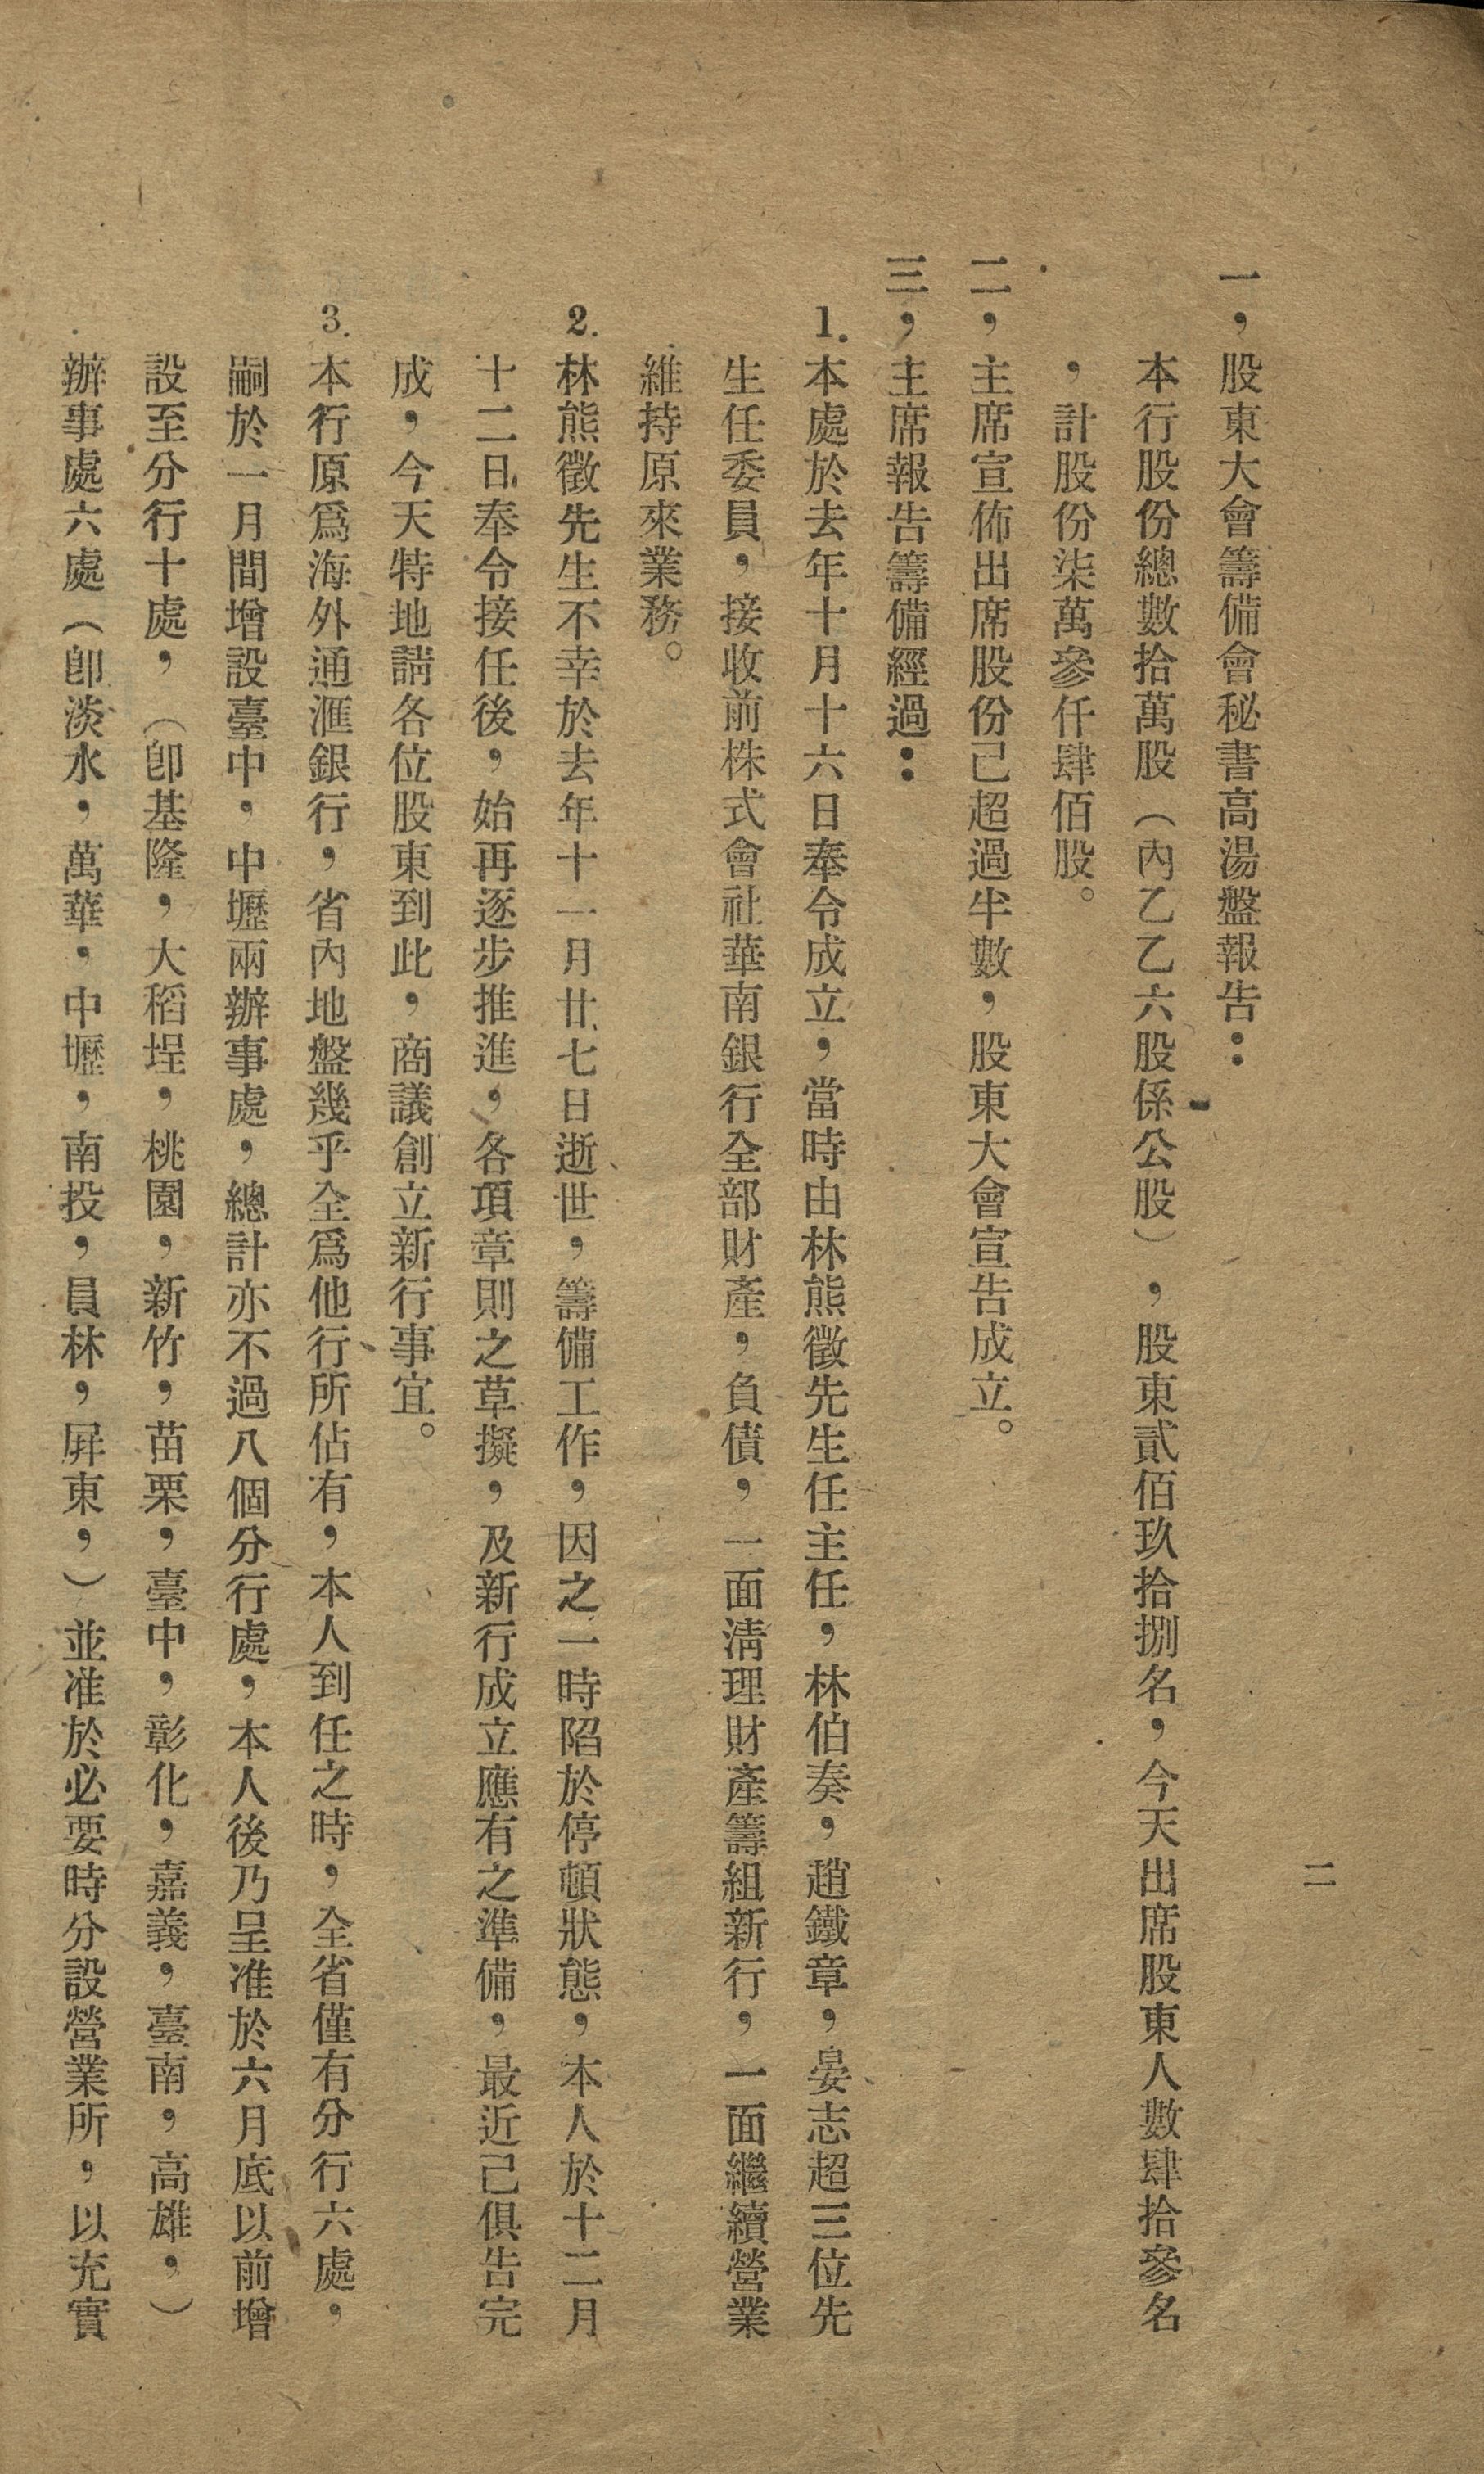 二
一，股東大會籌備會秘書高湯盤報告：
本行股份總數拾萬股（內乙乙六股係公股），股東貳佰玖拾捌名，今天出席股東人數肆拾參名
，計股份柒萬參仟肆佰股。
二，主席宣佈出席股份己超過半數，股東大會宣告成立。
三，主席報告籌備經過：
1.本處於去年十月十六日奉令成立，當時由林熊徵先生任主任，林伯奏，趙鐵章，晏志超三位先
生任委員，接收前株式會社華南銀行全部財產，負債，一面淸理財產籌組新行，一面繼續營業
維持原來業務。
2.林熊徵先生不幸於去年十一月廿七日逝世，籌備工作，因之一時陷於停頓狀態，本人於十二月
十二日奉令接任後，始再逐步推進，各項章則之草擬，及新行成立應有之準備，最近己俱告完
成，今天特地請各位股東到此，商議創立新行事宜。
3.本行原爲海外通滙銀行，省內地盤幾乎全爲他行所佔有，本人到任之時，全省僅有分行六處，
嗣於一月間增設臺中，中壢兩辦事處，總計亦不過八個分行處，本人後乃呈准於六月底以前增
設至分行十處，（卽基隆，大稻埕，桃園，新竹，苗栗，臺中，彰化，嘉義，臺南，高雄，）
辦事處六處（卽淡水，萬華，中壢，南投，員林，屛東，）並准於必要時分設營業所，以充實